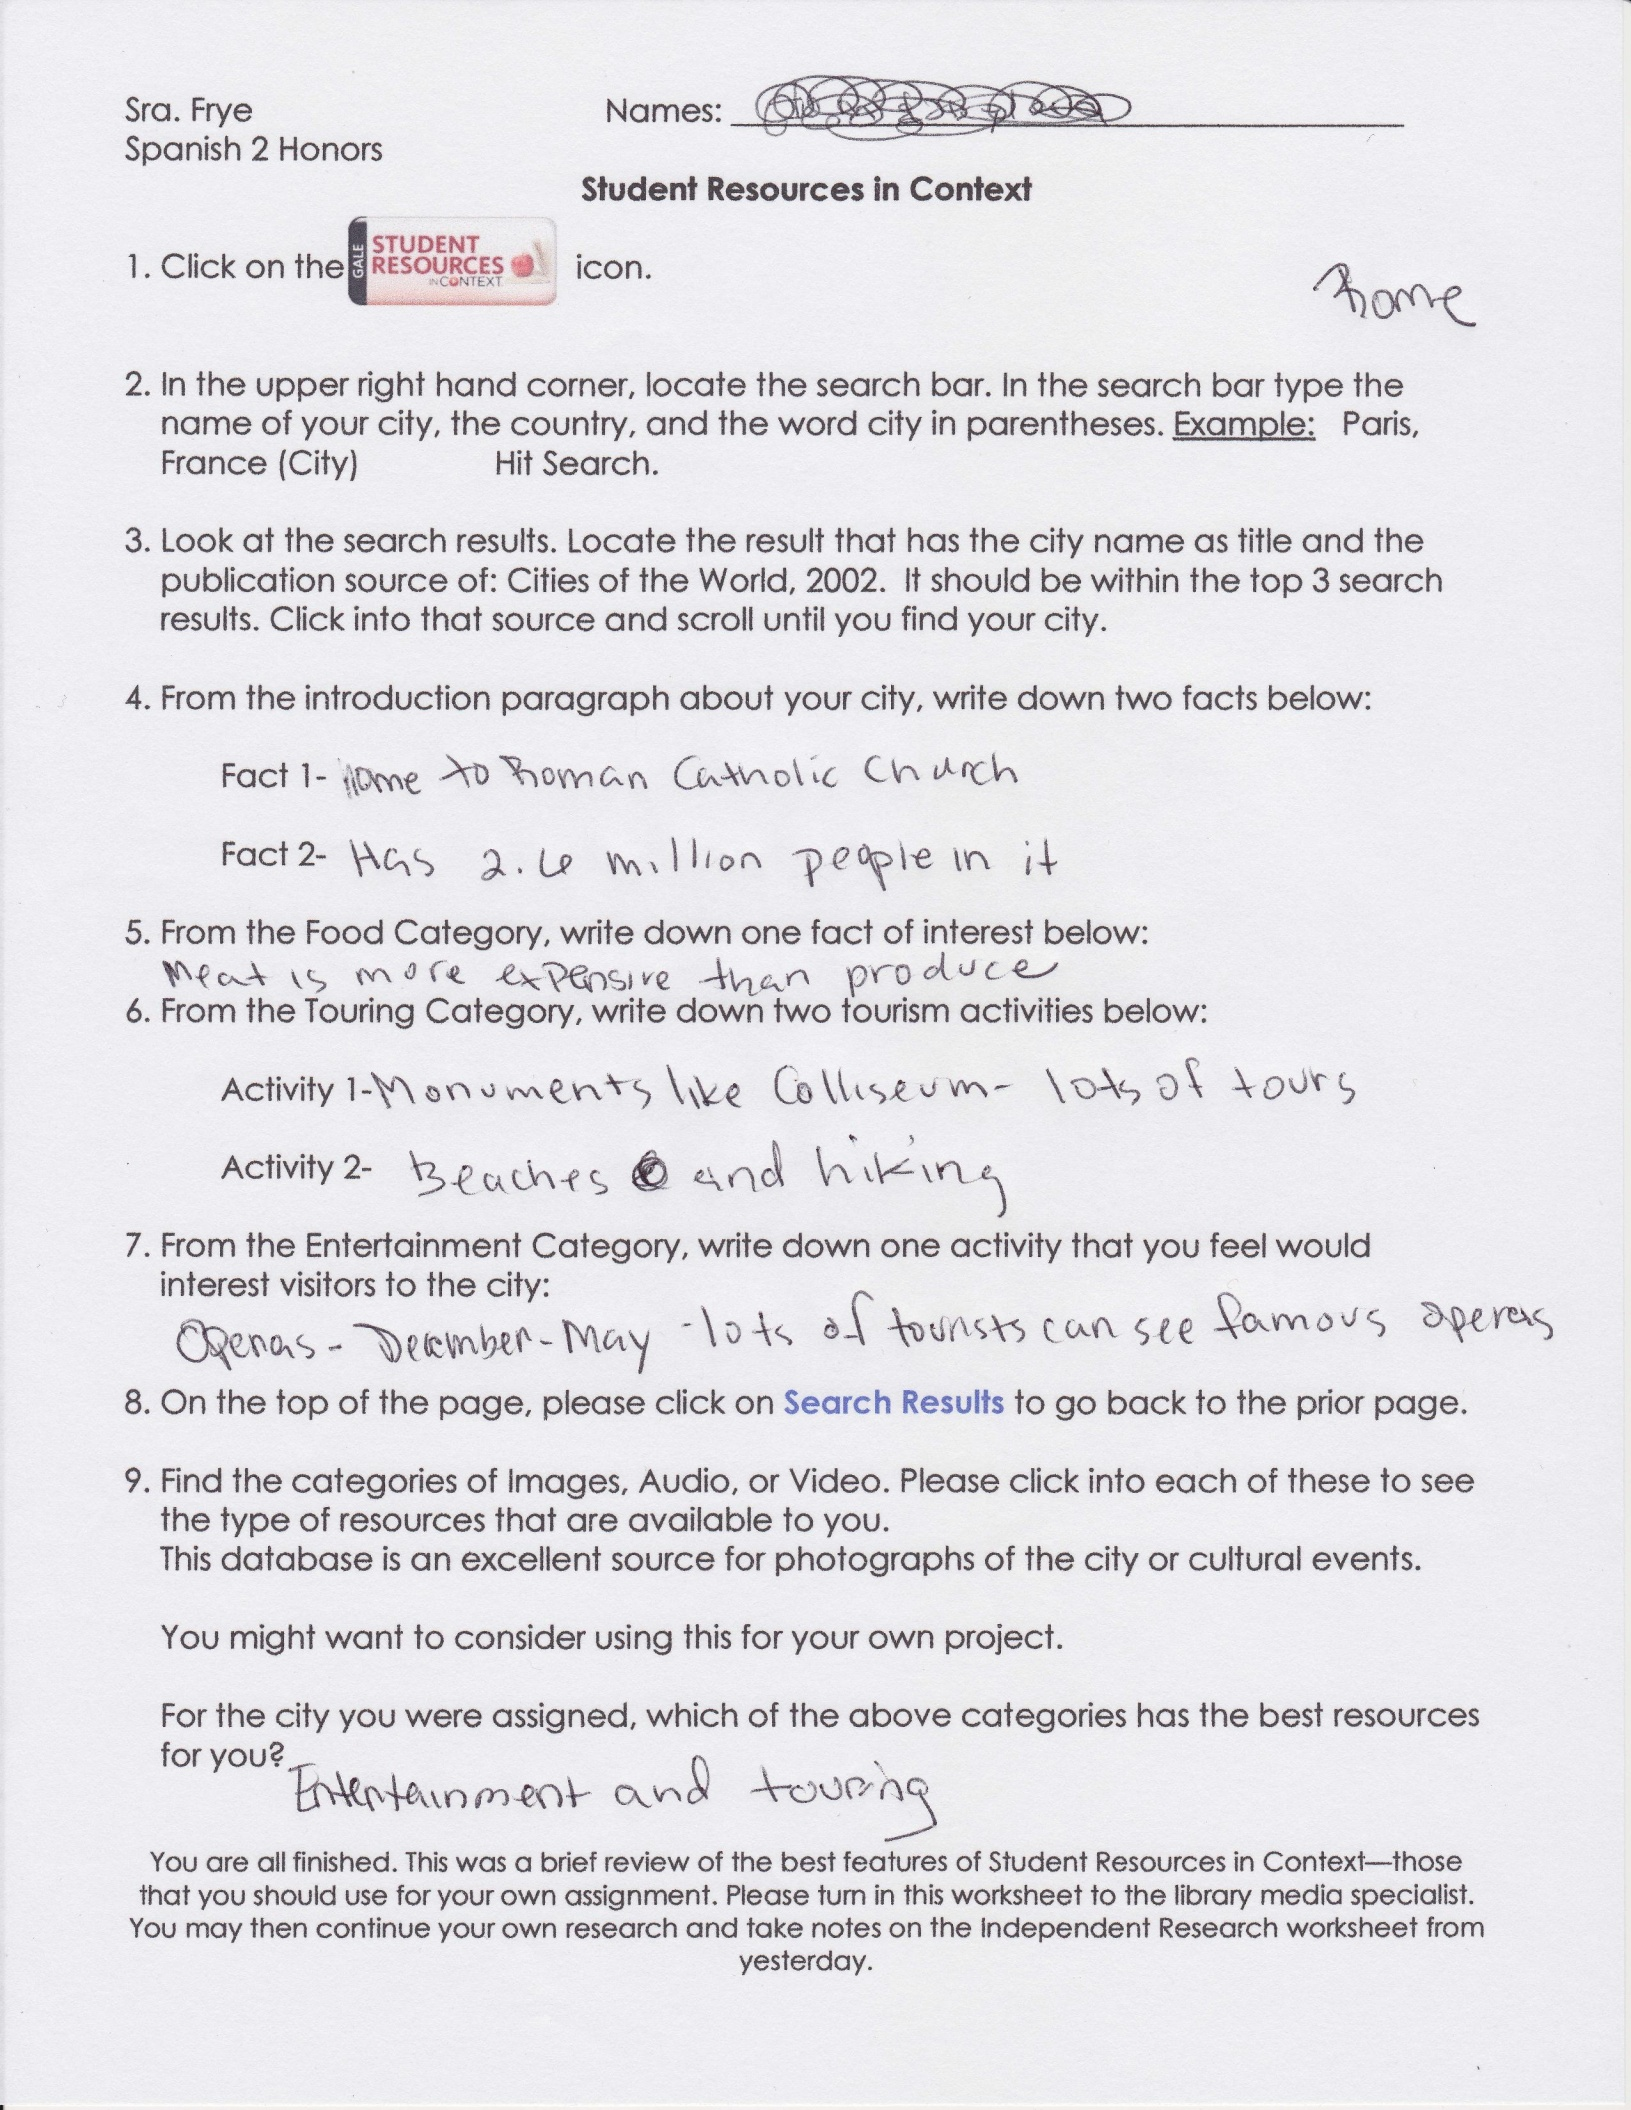 Sra. Frye Names:
Spanish 2 Honors
Student Resources in Context
1. Click on the GALE STUDENT RESOURCES IN CONTEXT icon.
Rome
2. In the upper right hand corner, locate the search bar. In the search bar type the
name of your city, the country, and the word city in parentheses. Example: Paris,
France (City) Hit Search.
3. Look at the search results. Locate the result that has the city name as title and the
publication source of: Cities of the World, 2002. It should be within the top 3 search
results. Click into that source and scroll until you find your city.
4. From the introduction paragraph about your city, write down two facts below:
Fact 1- Home to Roman Catholic Church
Fact 2- Has 2.6 million people in it
5. From the Food Category, write down one fact of interest below:
Meat is more expensive than produce
6. From the Touring Category, write down two tourism activities below:
Activity 1- Monuments like Colliseum- lots of tours
Activity 2- Beaches and hiking
7. From the Entertainment Category, write down one activity that you feel would
interest visitors to the city:
Operas - December - May - lots of tourists can see famous operas
8. On the top of the page, please click on Search Results to go back to the prior page.
9. Find the categories of Images, Audio, or Video. Please click into each of these to see
the type of resources that are available to you.
This database is an excellent source for photographs of the city or cultural events.
You might want to consider using this for your own project.
For the city you were assigned, which of the above categories has the best resources
for you?
Entertainment and touring
You are all finished. This was a brief review of the best features of Student Resources in Context—those
that you should use for your own assignment. Please turn in this worksheet to the library media specialist.
You may then continue your own research and take notes on the Independent Research worksheet from
yesterday.